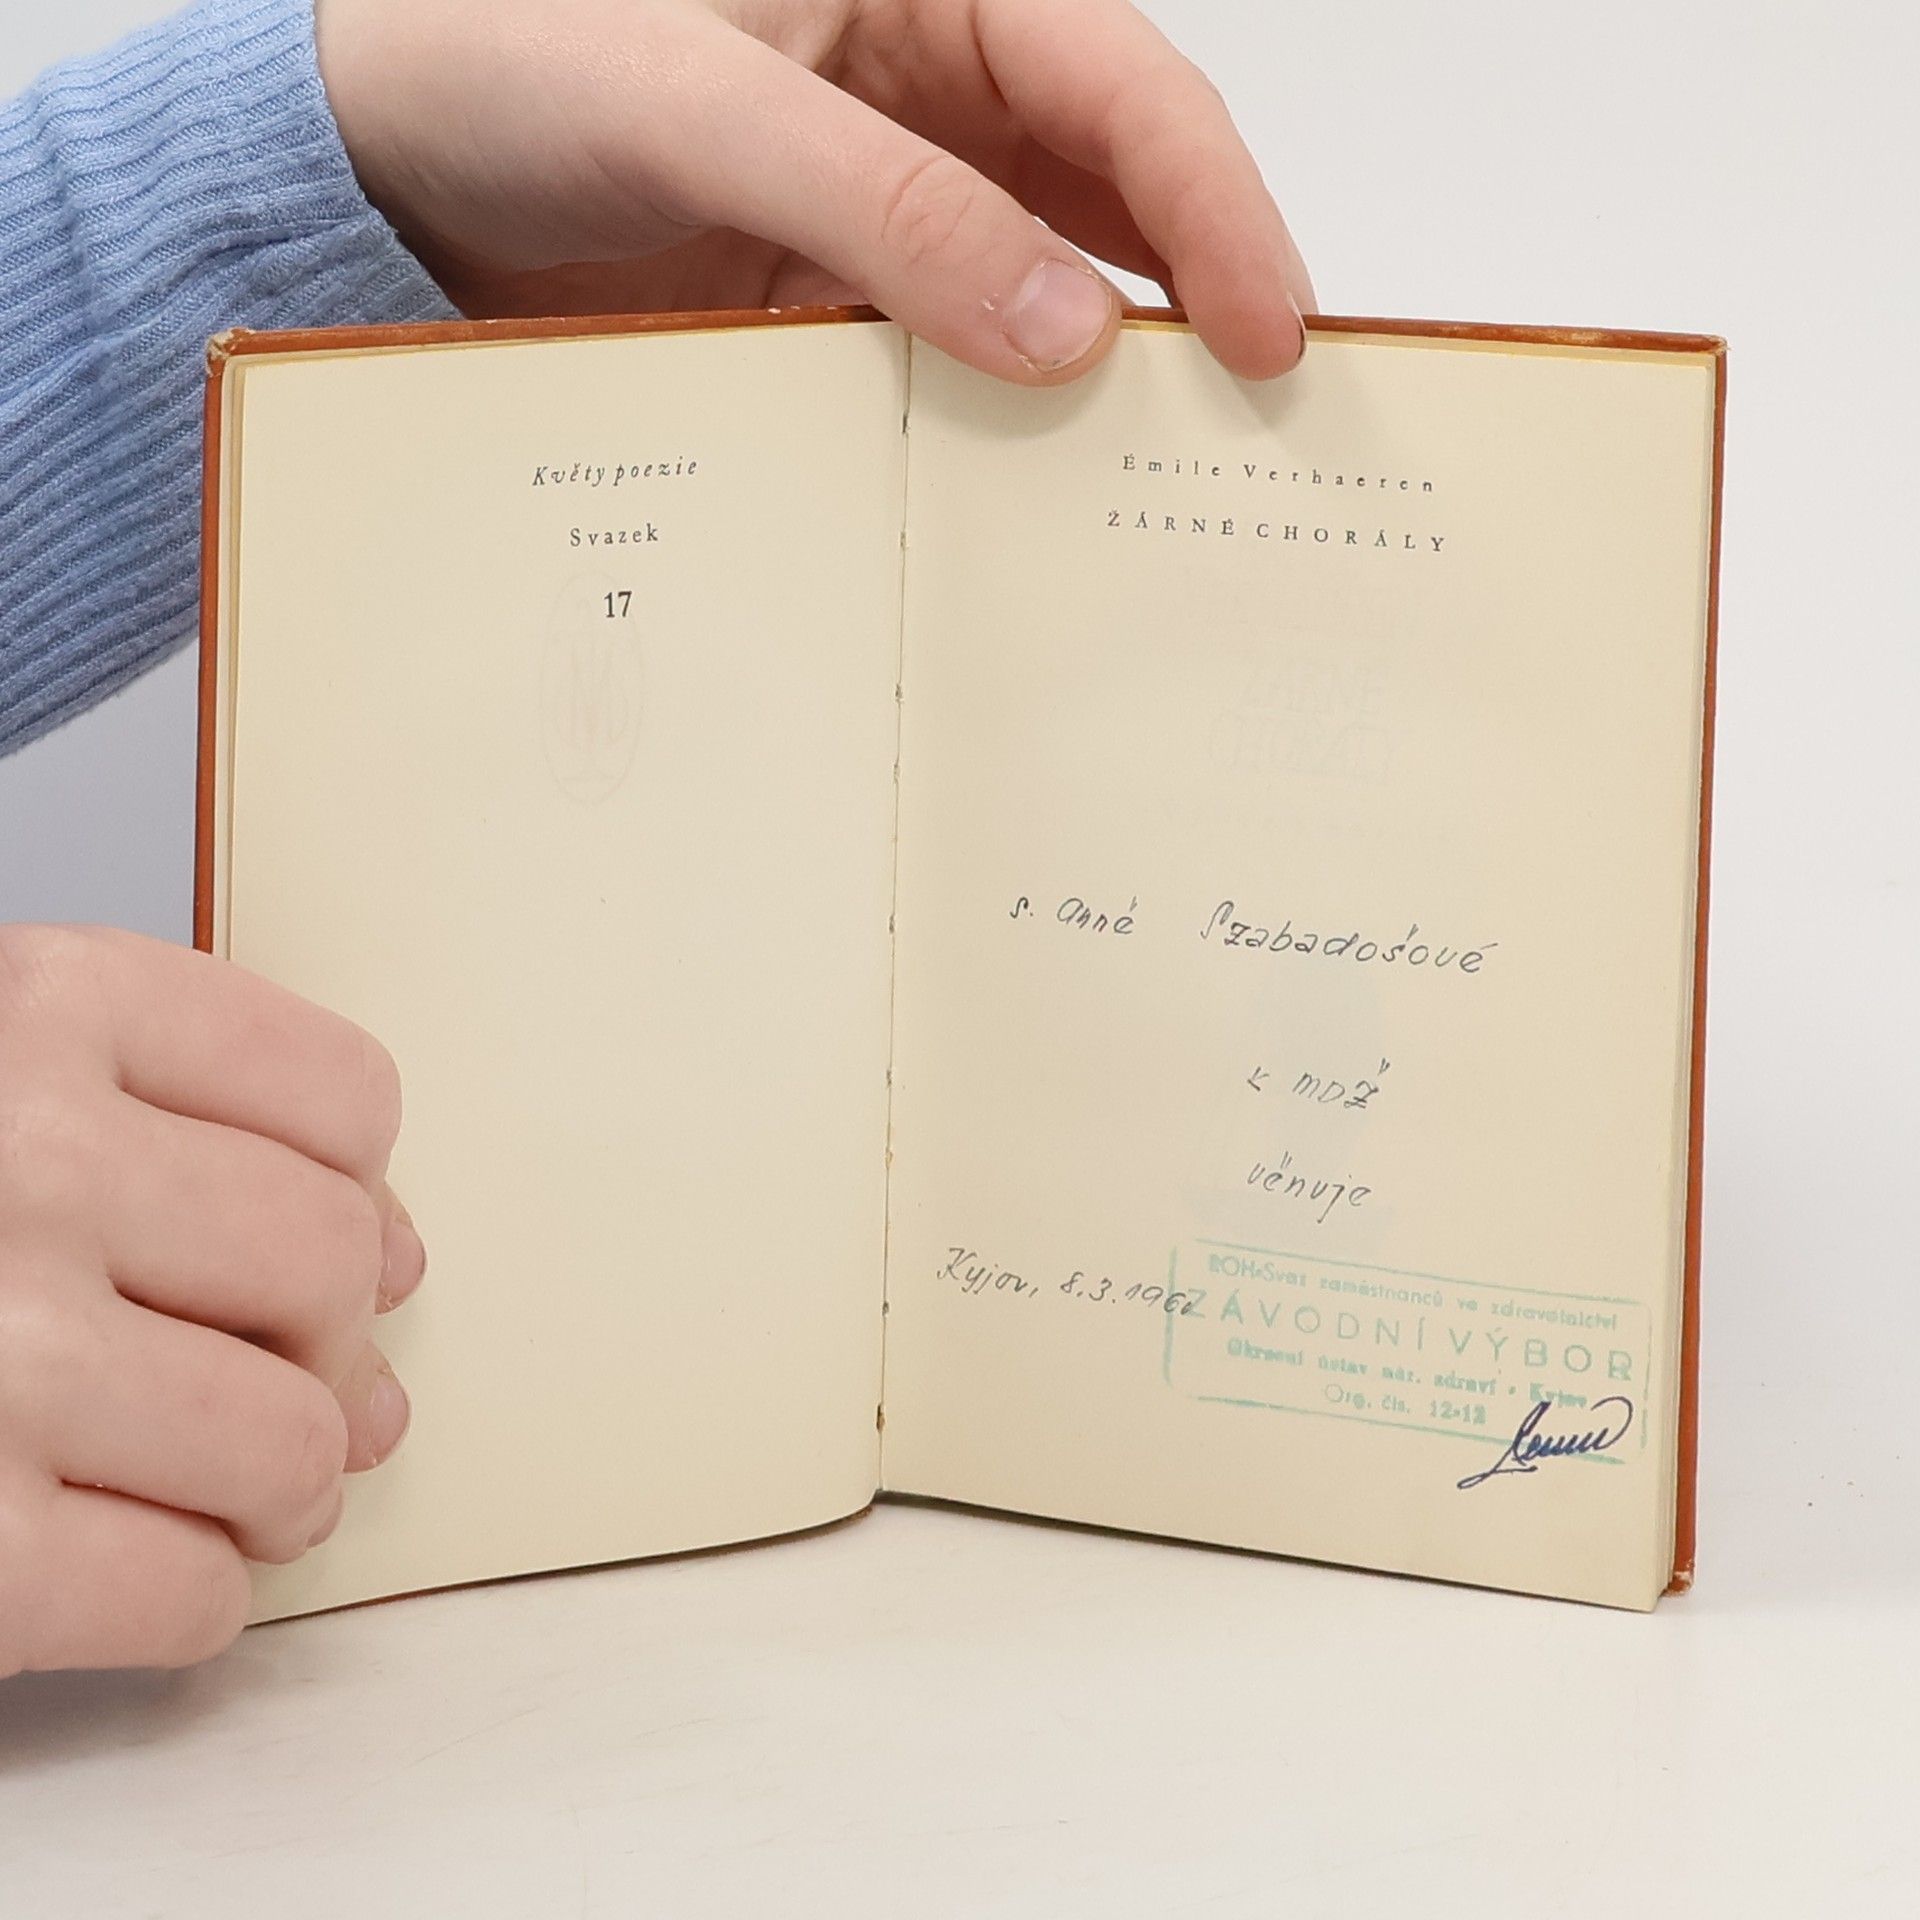 Květy poezie
Svazek
17
Émile Verhaeren
ŽÁRNÉ CHORÁLY
s. Anně Szabadošové
k MDŽ
věnuje
Kyjov, 8.3.196
ROH-Svaz zaměstnanců ve zdravotnictví
ZÁVODNÍ VÝBOR
Okresní ústav nár. zdraví • Kyjov
Org. čís. 12-12